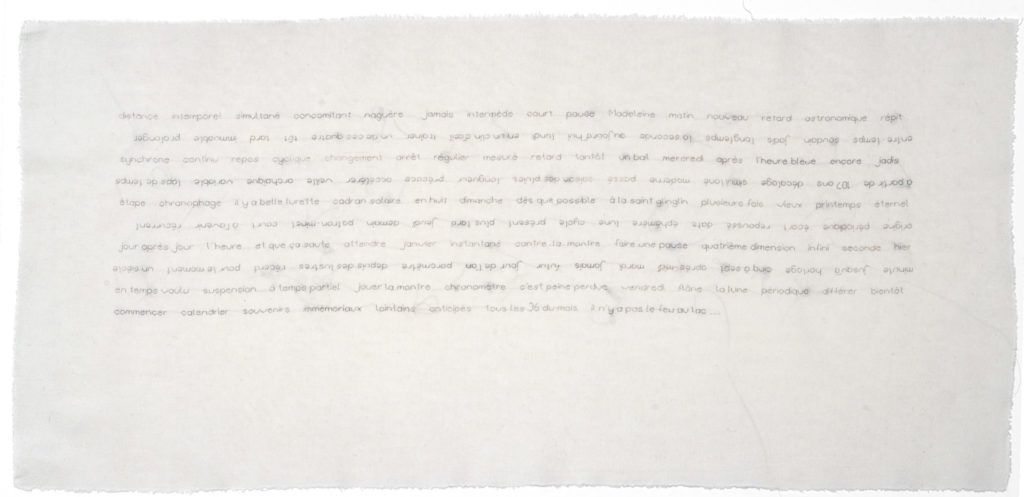 distance intemporel simultané concomitant naguère jamais intermède court pause Madeleine matin nouveau retard astronomique répit
entre temps soudain jadis longtemps la seconde aujourd'hui enfin clin d'œil traîner un de ces quatre tôt tard immuable prolonger
synchrone continu repos cyclique changement arrêt régulier mesure retard tantôt un bail mercredi après l'heure bleue encore jadis
laps de temps variable archaïque veille accélérer précoce longueur saison des pluies passé moderne simultané décalage 107 ans à partir de
étape chronophage il y a belle lurette cadran solaire en huit dimanche dès que possible à la saint glinglin plusieurs fois vieux printemps éternel
récurrent à l'avenir court patron-minet demain jeudi plus tard présent cycle éphémère date repoussée écart périodique origine
jour après jour l'heure et que ça saute attendre janvier instantané contre-la-montre faire une pause quatrième dimension infini seconde hier
un siècle pour le moment récent depuis des lustres paramètre jour de l'an futur jamais mardi après-midi cinq à sept horloge jusqu'à minute
en temps voulu suspension à temps partiel jouer la montre chronomètre c'est peine perdue vendredi flâne la lune périodique différer bientôt
commencer calendrier souvenirs immémoriaux lointains anticipés tous les 36 du mois il n'y a pas le feu au lac ...